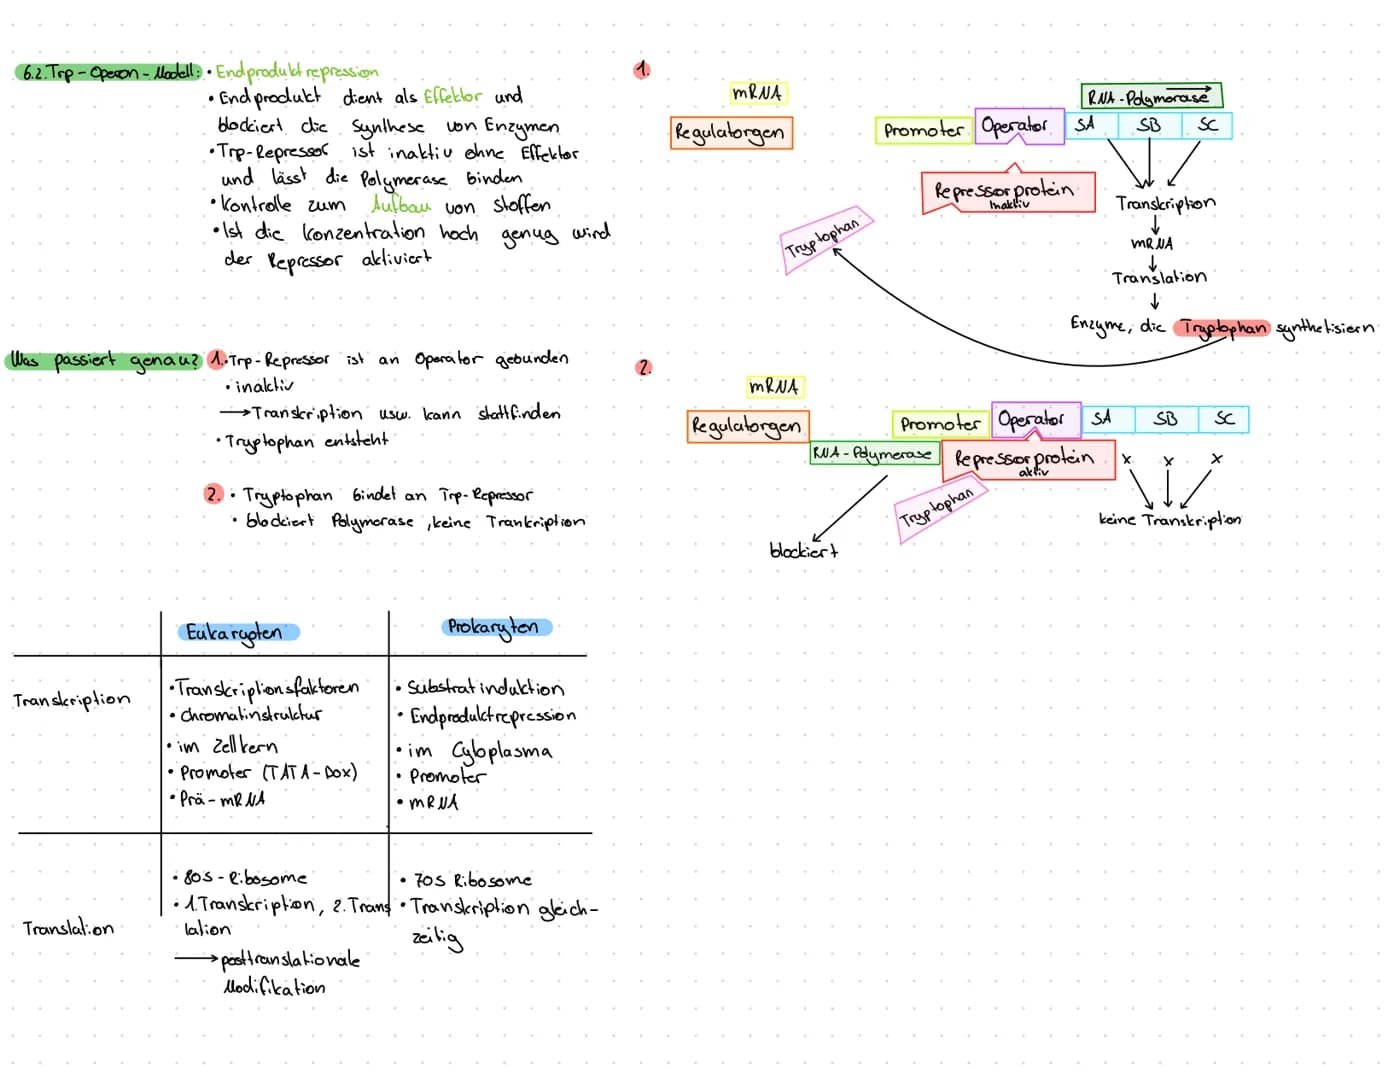 6.2. Trp-Operon-Modell: • Endproduktrepression
• Endprodukt dient als Effektor und
blockiert die Synthese von Enzymen
• Trp-Repressor ist inaktiv ohne Effektor
und lässt die Polymerase binden
• Kontrolle zum Aufbau von Stoffen
• Ist die Konzentration hoch genug wird
der Repressor aktiviert
Was passiert genau? 1. • Trp-Repressor ist an Operator gebunden
• inaktiv
→ Transkription usw. kann stattfinden
• Tryptophan entsteht
2. • Tryptophan bindet an Trp-Repressor
• blockiert Polymerase, keine Trankription
1.
mRNA
RNA-Polymerase
Regulatorgen
Promoter Operator SA SB SC
Repressorprotein
Inaktiv
Transkription
Tryptophan
mRNA
Translation
Enzyme, die Tryptophan synthetisiern
2.
mRNA
Regulatorgen
Promoter Operator SA SB SC
RNA-Polymerase Repressorprotein x x x
aktiv
Tryptophan
keine Transkription
blockiert
Eukaryoten Prokaryten
Transkription
• Transkriptionsfaktoren
• Chromatinstruktur
• im Zellkern
• Promoter (TATA-Box)
• Prä-mRNA
• Substratinduktion
• Endproduktrepression
• im Cytoplasma
• Promoter
• mRNA
Translation
• 80s-Ribosome
• 1. Transkription, 2. Trans
lation
→ posttranslationale
Modifikation
• 70s Ribosome
• Transkription gleich-
zeitig